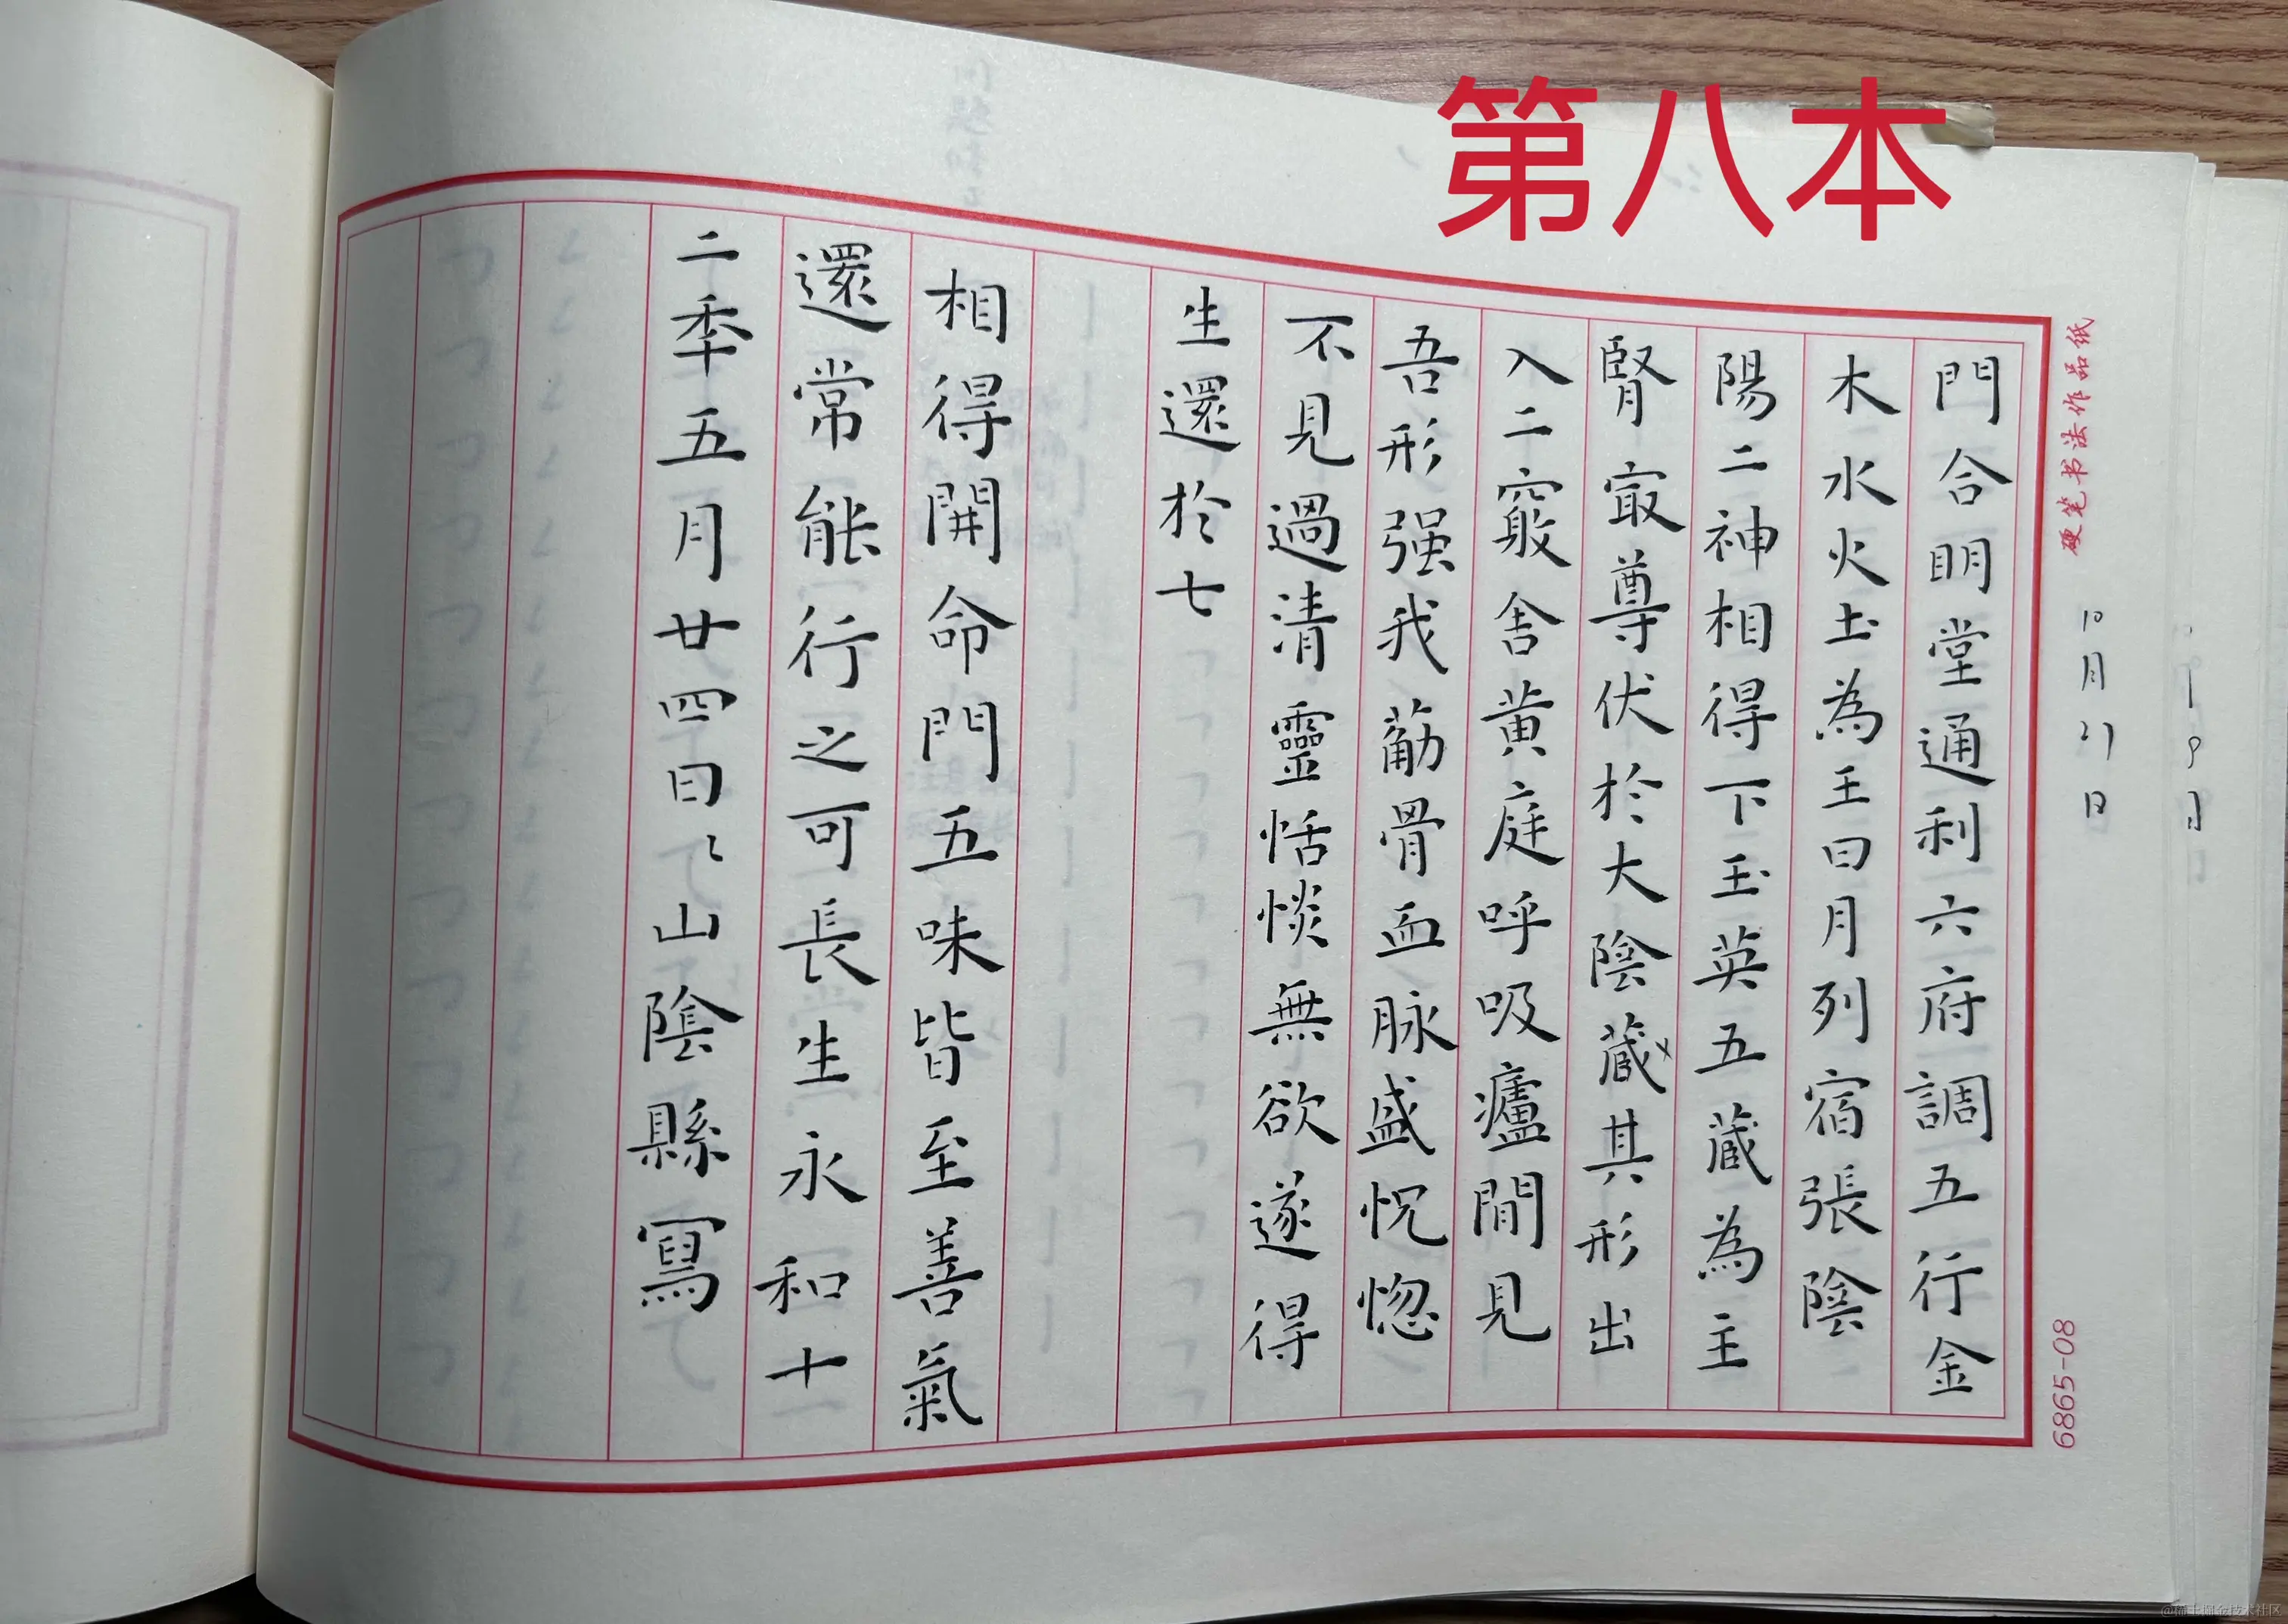 第八本
硬笔书法作品纸
10月21日
6865-08
門合明堂通利六府調五行金
木水火土為王日月列宿張陰
陽二神相得下玉英五藏為主
腎寂尊伏於大陰藏其形出
入二竅舍黃庭呼吸廬間見
吾形强我葪骨血脉盛怳惚
不見過清靈恬惔無欲遂得
生還於七
相得開命門五味皆至善氣
還常能行之可長生永和十
二秊五月廿四日山陰縣寫
@稀土掘金技术社区